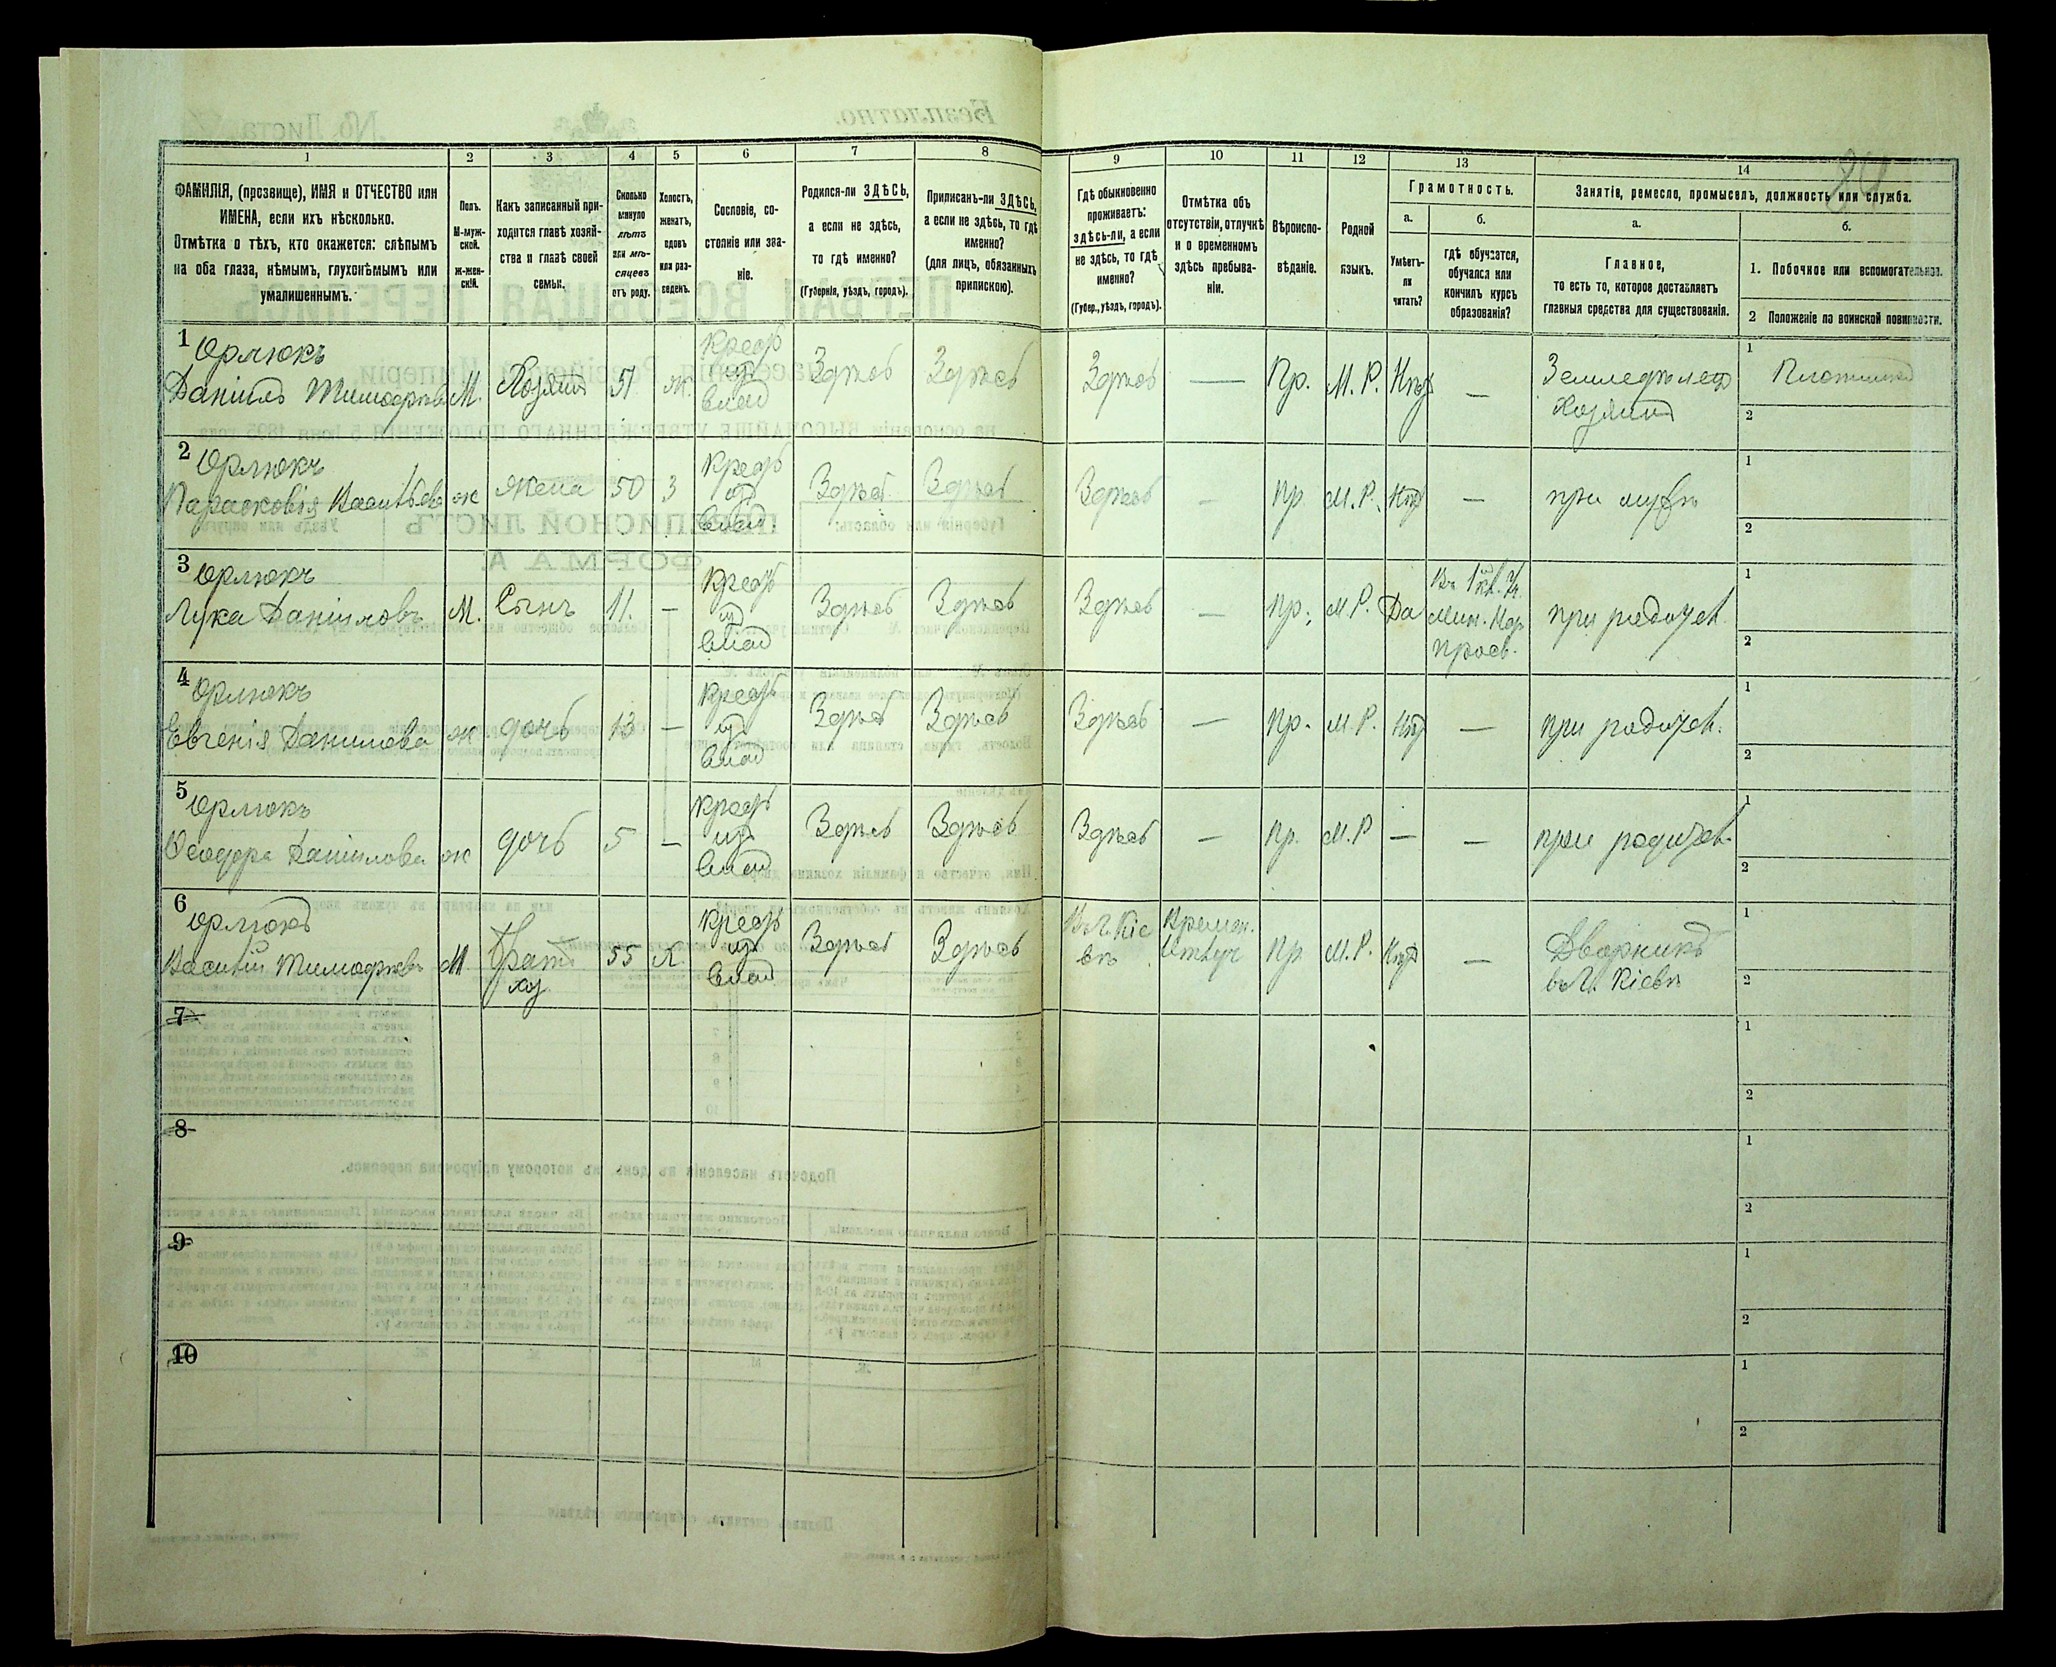 1 2 3 4 5 6 7 8 9 10 11 12 13 14
ФАМИЛІЯ, (прозвище), ИМЯ и ОТЧЕСТВО или
ИМЕНА, если ихъ нѣсколько.
Отмѣтка о тѣхъ, кто окажется: слѣпымъ
на оба глаза, нѣмымъ, глухонѣмымъ или
умалишеннымъ.
Полъ.
М-муж-
ской.
ж-жен-
скій.
Какъ записанный при-
ходится главѣ хозяй-
ства и главѣ своей
семьи.
Сколько
минуло
лѣтъ
или мѣ-
сяцевъ
отъ роду.
Холостъ,
женатъ,
вдовъ
или раз-
веденъ.
Сословіе, со-
стояніе или зва-
ніе.
Родился-ли ЗДѢСЬ,
а если не здѣсь,
то гдѣ именно?
(Губернія, уѣздъ, городъ).
Приписанъ-ли ЗДѢСЬ,
а если не здѣсь, то гдѣ
именно?
(для лицъ, обязанныхъ
припискою).
Гдѣ обыкновенно
проживаетъ:
здѣсь-ли, а если
не здѣсь, то гдѣ
именно?
(Губер., уѣздъ, городъ).
Отмѣтка объ
отсутствіи, отлучкѣ
и о временномъ
здѣсь пребыва-
ніи.
Вѣроиспо-
вѣданіе.
Родной
языкъ.
Грамотность.
а.
Умѣетъ-
ли
читать?
б.
гдѣ обучается,
обучался или
кончилъ курсъ
образованія?
Занятія, ремесло, промыселъ, должность или служба.
а.
Главное,
то есть то, которое доставляетъ
главныя средства для существованія.
б.
1. Побочное или вспомогательное.
2 Положеніе по воинской повинности.
1 Орлюкъ
Даніилъ Тимофѣевъ М. Хозяинъ 51 ж. Крест из влад Здѣсь Здѣсь Здѣсь — Пр. М. Р. Нѣт — Земледѣлец Хозяинъ 1 Плотникъ
2
2 Орлюкъ
Парасковія Васильева ж жена 50 З Крест из влад. Здѣсь Здѣсь Здѣсь — Пр М. Р. Нѣт — при мужѣ 1
2
3 Орлюкъ
Лука Даніиловъ М. Сынъ 11. — Крест из влад Здѣсь Здѣсь Здѣсь — Пр. М. Р. Да Мин. Нар. просв. при родител. 1
2
4 Орлюкъ
Евгенія Данилова ж дочь 13 — Крест из влад Здѣсь Здѣсь Здѣсь — Пр. М. Р. Нѣт — при родител. 1
2
5 Орлюкъ
Ѳеодора Даніилова ж дочь 5 — Крест из влад Здѣсь Здѣсь Здѣсь — Пр. М. Р — — при родител. 1
2
6 Орлюкъ
Василій Тимофѣевъ М Братъ хоз. 55 Крест из влад Здѣсь Здѣсь В г. Кіевѣ Времен. Отлуч Пр М. Р. Нѣт — Дворникъ в г. Кіевѣ 1
2
7 1
2
8 1
2
9 1
2
10 1
2